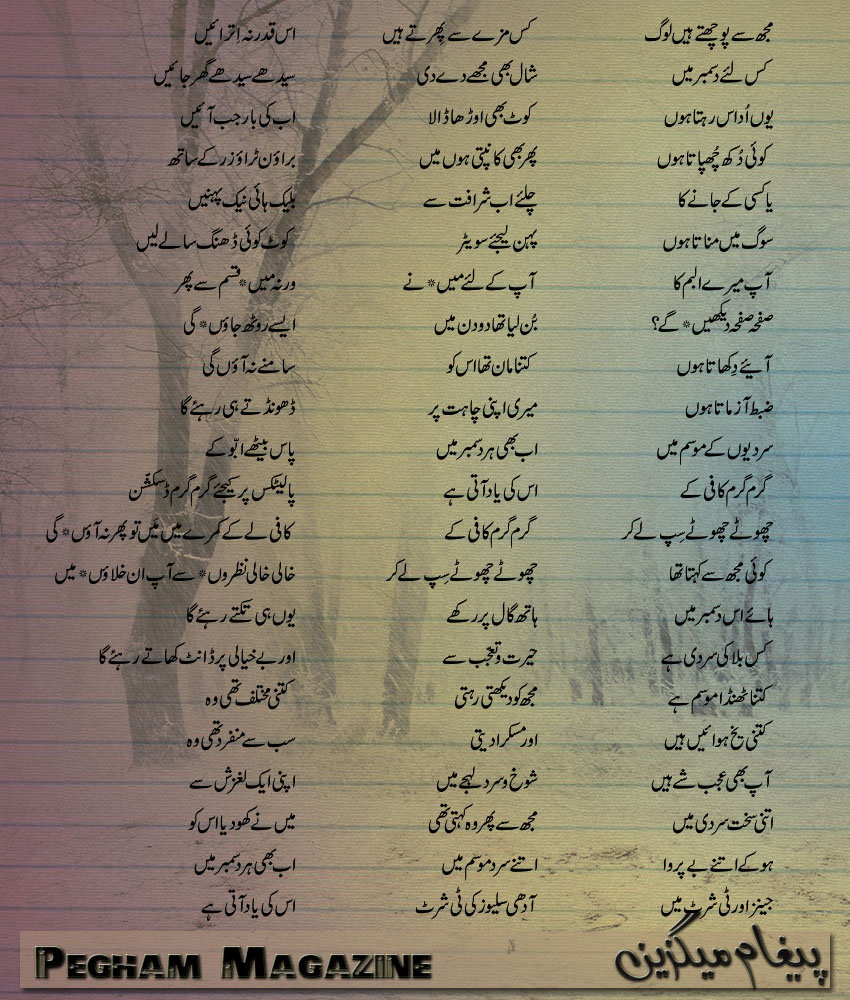 مجھ سے پوچھتے ہیں لوگ
کس لئے دسمبر میں
یوں اُداس رہتا ہوں
کوئی دُکھ چُھپاتا ہوں
یا کسی کے جانے کا
سوگ میں مناتا ہوں
آپ میرے البم کا
صفحہ صفحہ دیکھیں* گے؟
آیئے دِکھاتا ہوں
ضبط آزماتا ہوں
سردیوں کے موسم میں
گرم گرم کافی کے
چھوٹے چھوٹے سِپ لے کر
کوئی مجھ سے کہتا تھا
ہائے اس دسمبر میں
کس بلا کی سردی ہے
کتنا ٹھنڈا موسم ہے
کتنی یخ ہوائیں ہیں
آپ بھی عجب شے ہیں
اتنی سخت سردی میں
ہو کے اتنے بے پروا
جینز اور ٹی شرٹ میں
کس مزے سے پِھرتے ہیں
شال بھی مجھے دے دی
کوٹ بھی اوڑھا ڈالا
پھر بھی کانپتی ہوں میں
چلئے اب شرافت سے
پہن لیجئے سویٹر
آپ کے لئے میں* نے
بُن لیا تھا دو دن میں
کتنا مان تھا اس کو
میری اپنی چاہت پر
اب بھی ہر دسمبر میں
اس کی یاد آتی ہے
گرم گرم کافی کے
چھوٹے چھوٹے سِپ لے کر
ہاتھ گال پر رکھے
حیرت و تعجّب سے
مجھ کو دیکھتی رہتی
اور مسکرا دیتی
شوخ و سرد لہجے میں
مجھ سے پھر وہ کہتی تھی
اتنے سرد موسم میں
آدھی سلیوز کی ٹی شرٹ
اس قدر نہ اِترائیں
سیدھے سیدھے گھر جائیں
اب کی بار جب آئیں
براؤن ٹراؤزر کے ساتھ
بلیک ہائی نیک پہنیں
کوٹ کوئی ڈھنگ سا لے لیں
ورنہ میں* قسم سے پھر
ایسے روٹھ جاؤں* گی
سامنے نہ آؤں گی
ڈھونڈتے ہی رہئے گا
پاس بیٹھے ابّو کے
پالیٹکس پر کیجئے گرم گرم ڈسکشّن
کافی لے کے کمرے میں میَں تو پھر نہ آؤں* گی
خالی خالی نظروں* سے آپ ان خلاؤں* میں
یوں ہی تکتے رہئے گا
اور بے خیالی پر ڈانٹ کھاتے رہئے گا
کتنی مختلف تھی وہ
سب سے منفرد تھی وہ
اپنی ایک لغزش سے
میں نے کھو دیا اس کو
اب بھی ہر دسمبر میں
اس کی یاد آتی ہے
پیغام میگزین
Pegham Magazine